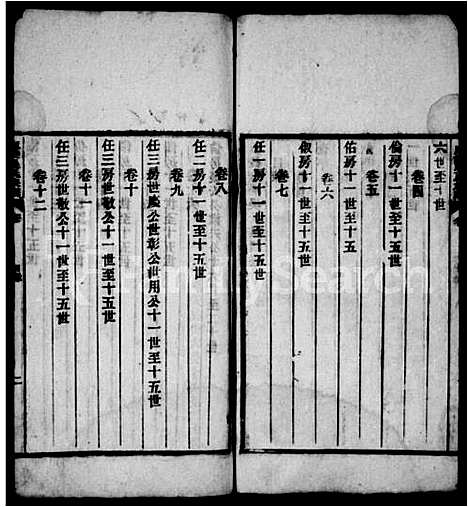 六世至十世
卷四
倫房十一世至十五世
卷五
佑房十一世至十五
卷六
俶房十一世至十五世
卷七
任一房十一世至十五世
卷八
任二房十一世至十五世
卷九
任三房世慶公世彰公世用公十一世至十五世
卷十
任三房世敬公十一世至十五世
卷十一
任三房世敬公十一世至十五世
卷十二
FamilySearch